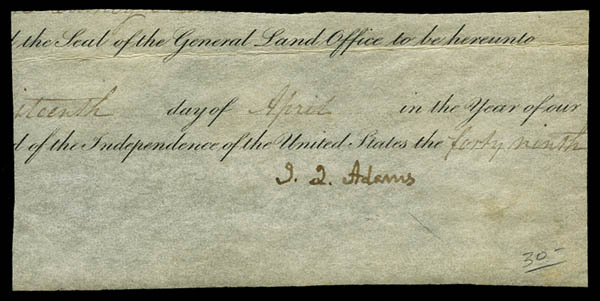 the Seal of the General Land Office to be hereunto
day of April in the Year of our
of the Independence of the United States the forty ninth
J. Q. Adams
30-